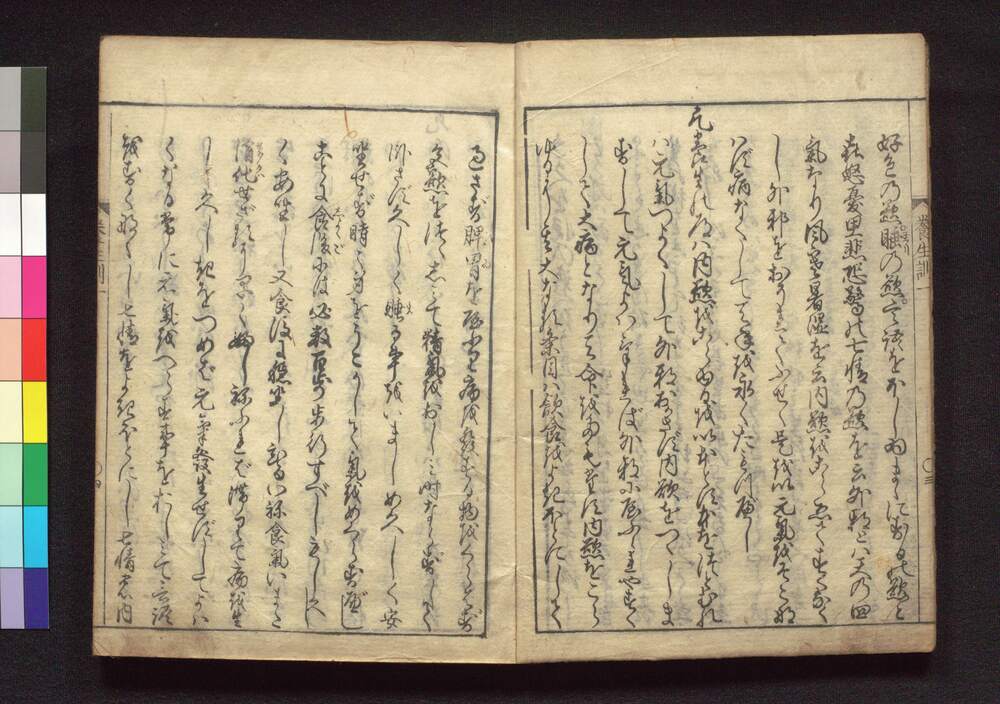 好色の慾睡の慾言語をほしゐまゝにするの慾と
喜怒憂思悲恐驚の七情の慾を云外邪とは天の四
氣なり風寒暑湿を云内慾をこらゑてすくなく
し外邪をおそれてふせぐ是を以元氣をそこな
はず病なくして天年を永くたもつべし
凡養生の道ハ内慾をこらゆるを以本とす本をつとむれ
ハ元氣つよくして外邪おかさず内慾をつゝしま
ずして元氣よハけれは外邪にやふれやすく
して大病となり天命をたもたす内慾をこら
ゆるに其大なる条目ハ飲食をよきほとにして
過さず脾胃をやふり病を発する物をくらハず
色慾をつゝしミて精氣をおしミ時ならずして
臥さず久しく睡る事をいましめ久しく安
坐せず時々身をうこかして氣をめくらすべし
ことに食後には必数百歩歩行すべしもし久し
く安坐し又食後に穏坐しひるいね食氣いまた
消化せざるに早くふしねふれば滞りて病を生
し久しきをつめば元氣發生せずしてよハ
くなる常に元氣をへらす事をおしミて言語
をすくなくし七情をよきほとにし七情の内
養生訓一
〇三
〇四